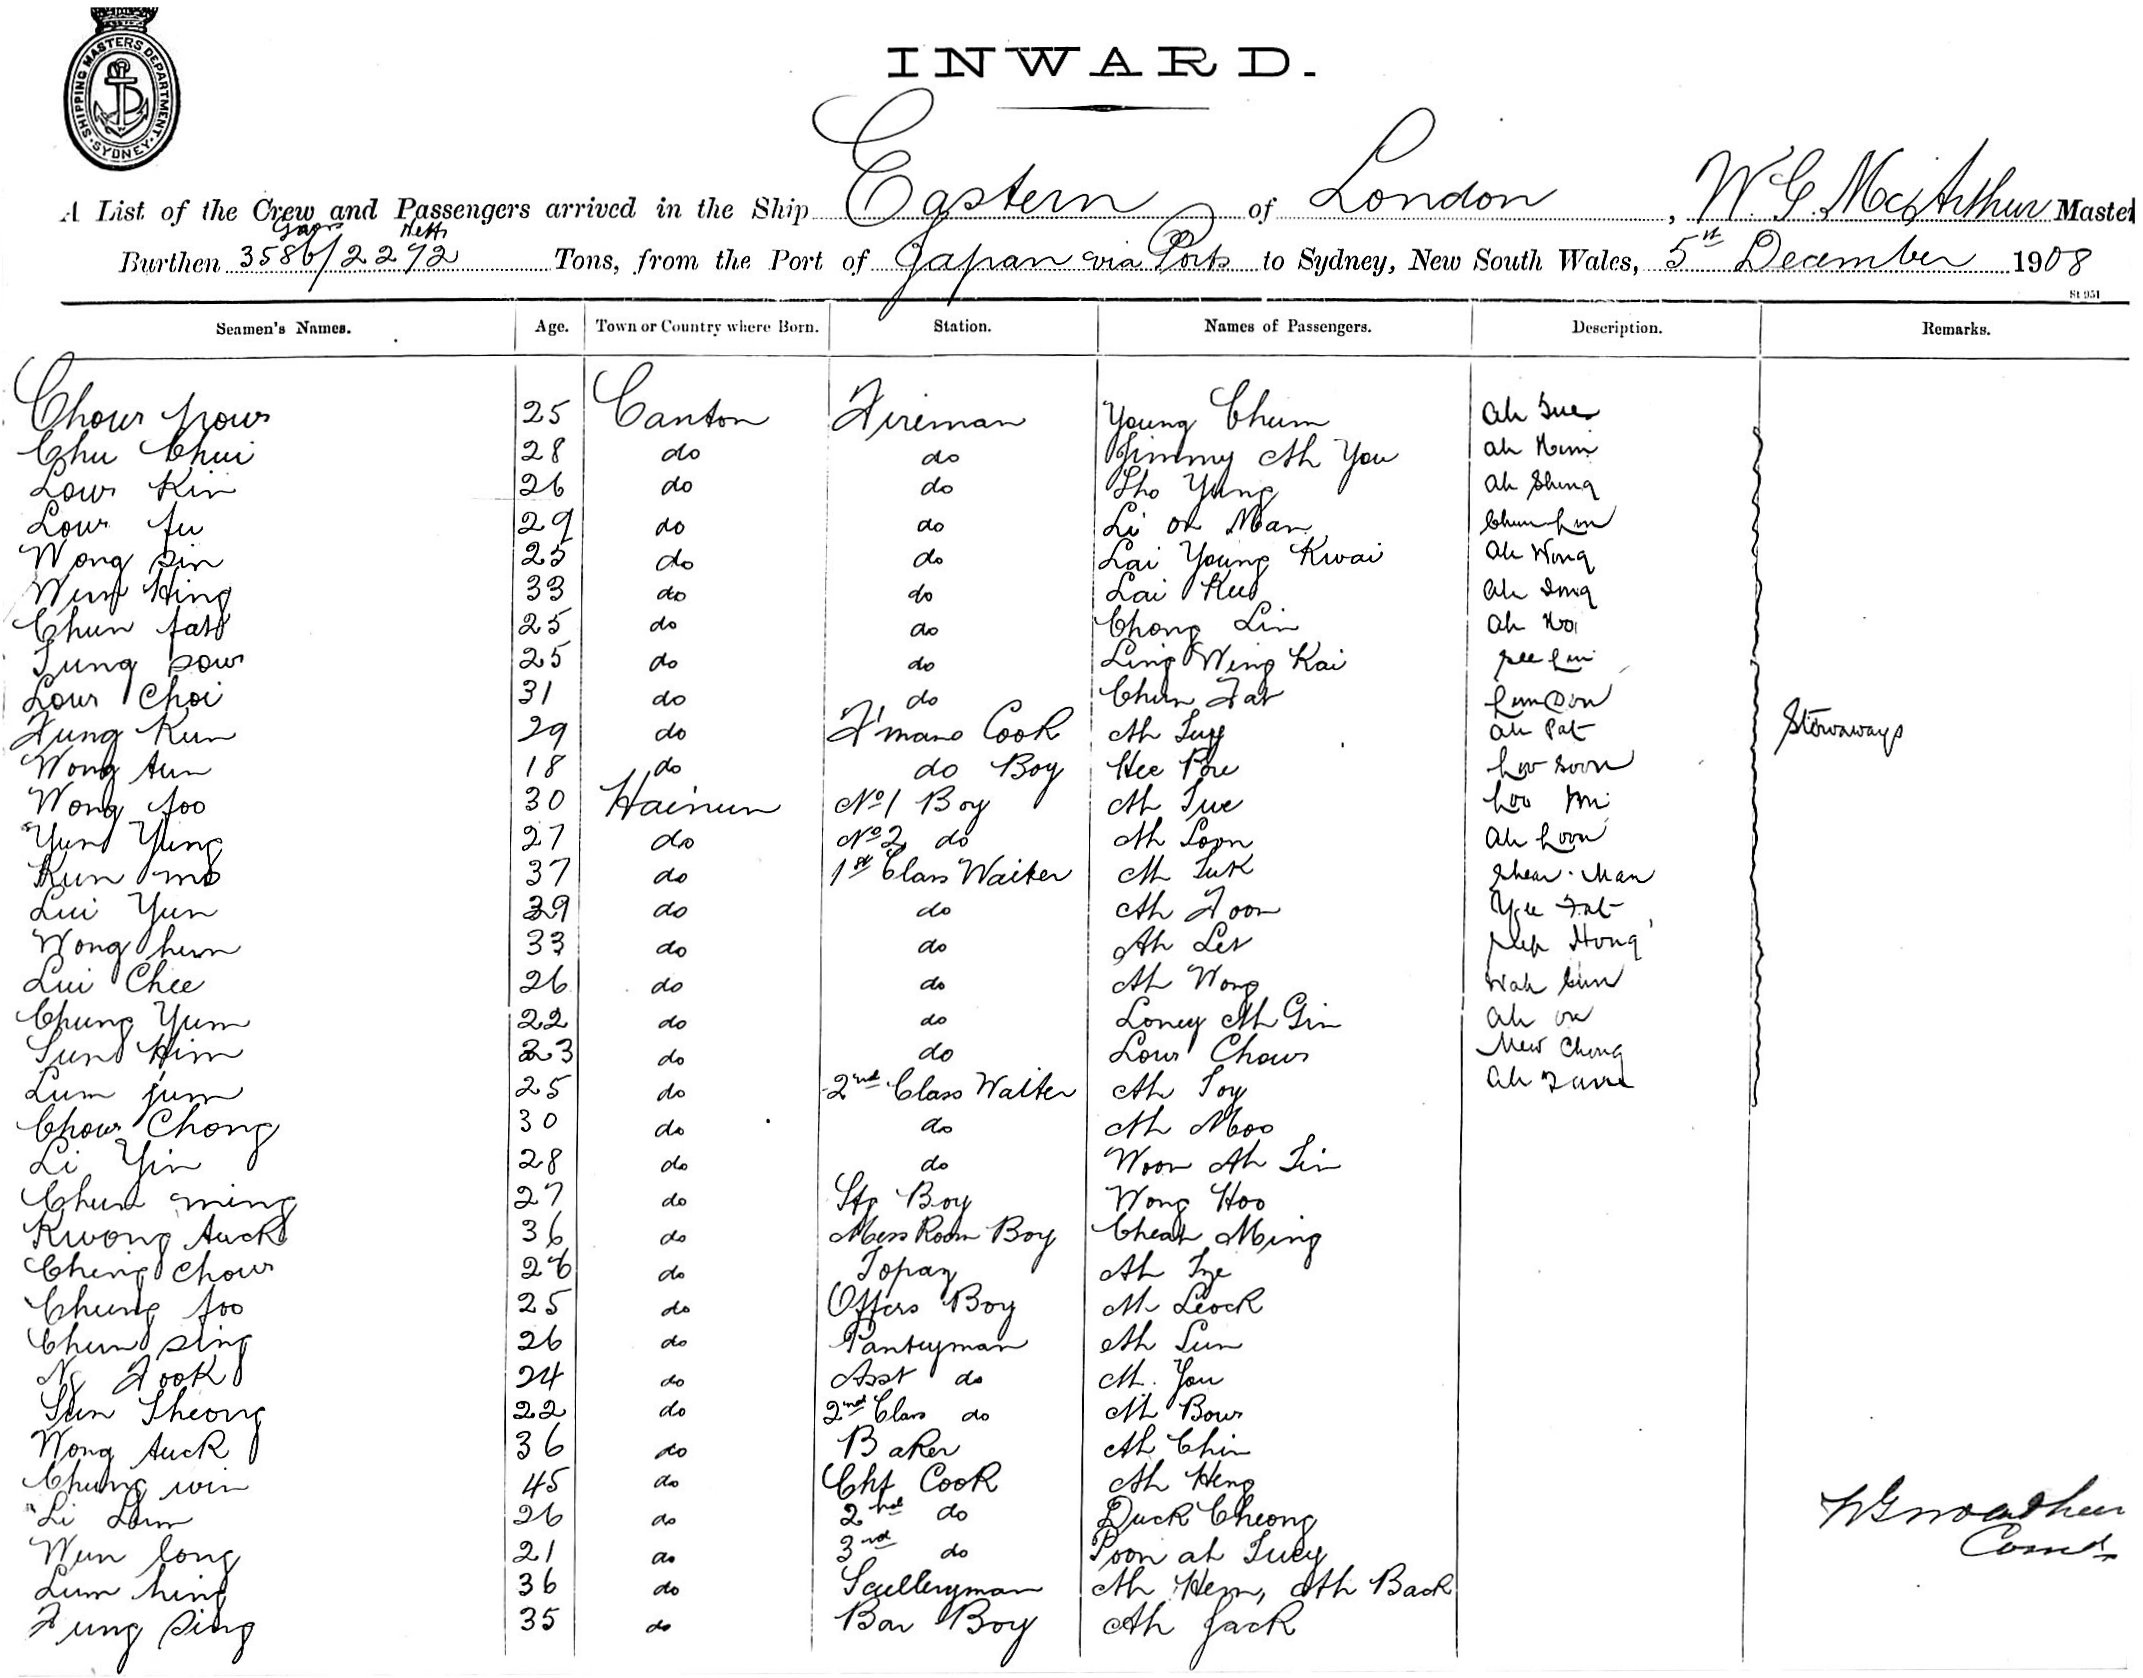 SHIPPING MASTERS DEPARTMENT SYDNEY
INWARD.
A List of the Crew and Passengers arrived in the Ship Eastern of London, W. G. McArthur Master
Gross Nett
Burthen 3586/2272 Tons, from the Port of Japan via Ports to Sydney, New South Wales, 5th December 1908
St 951
Seamen's Names. Age. Town or Country where Born. Station. Names of Passengers. Description. Remarks.
Chow 25 Canton Fireman Young Chum Ah Sue
Chu Chui 28 do do Jimmy Ah You Ah
Low Kin 26 do do Sho Yung Ah Shing
Low fu 29 do do Li On Man
Wong Sin 25 do do Lai Young Kwai Ah Wong
Wun Hing 33 do do Lai Kee Ah
Chun fatt 25 do do Chong Lin Ah
Tung Sow 25 do do Ling Wing Kai
Low Choi 31 do do Chun Fat
Fung Kun 29 do F'mans Cook Ah Ah Pat Stowaways
Wong tun 18 do do Boy Hee
Wong foo 30 Hainun No 1 Boy Ah Sue
Yun Yung 27 do No 2 do Ah Loon Ah Loon
Kun mo 37 do 1st Class Waiter Ah Tuk Shear Man
Lui Yun 39 do do Ah Foon Yee Fat
Wong hun 33 do do Ah Let Hong
Lui Chee 26 do do Ah Wong Wah Sun
Chung Yum 22 do do Loney Ah Gin Ah On
Sun Him 23 do do Low Chow Mew Chong
Lum jum 25 do 2nd Class Waiter Ah Toy Ah
Chow Chong 30 do do Ah Moo
Li Yin 28 do do Woon Ah Tin
Chun ming 27 do Boy Wong Hoo
Kwong Auck 36 do Mess Room Boy Cheah Ming
Ching Chow 26 do Topaz Ah
Chung foo 25 do Offers Boy Ah Leock
Chun Sing 26 do Pantryman Ah Sun
Ng Fook 24 do Asst do Ah You
Sun Sheong 22 do 2nd Class do Ah Bow
Wong Auck 36 do Baker Ah Chin
Chung win 45 do Chf Cook Ah Heng
Li 26 do 2nd do Duck Cheong
Wun long 21 do 3rd do Poon ah
Lum hing 36 do Sculleryman Ah Hem, Ah Back
Fung Sing 35 do Bar Boy Ah Jack